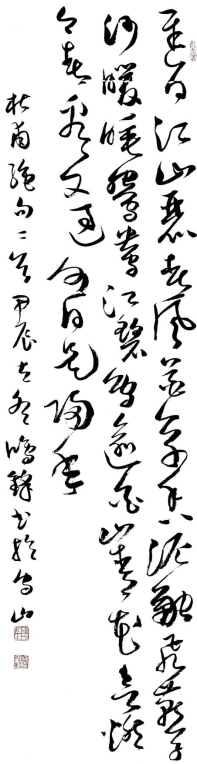 遲日江山麗春風花草香泥融飛燕子
沙暖睡鴛鴦江碧鳥逾白山青花欲燃
今春看又過何日是歸年
杜甫絶句二首甲辰冬書於山